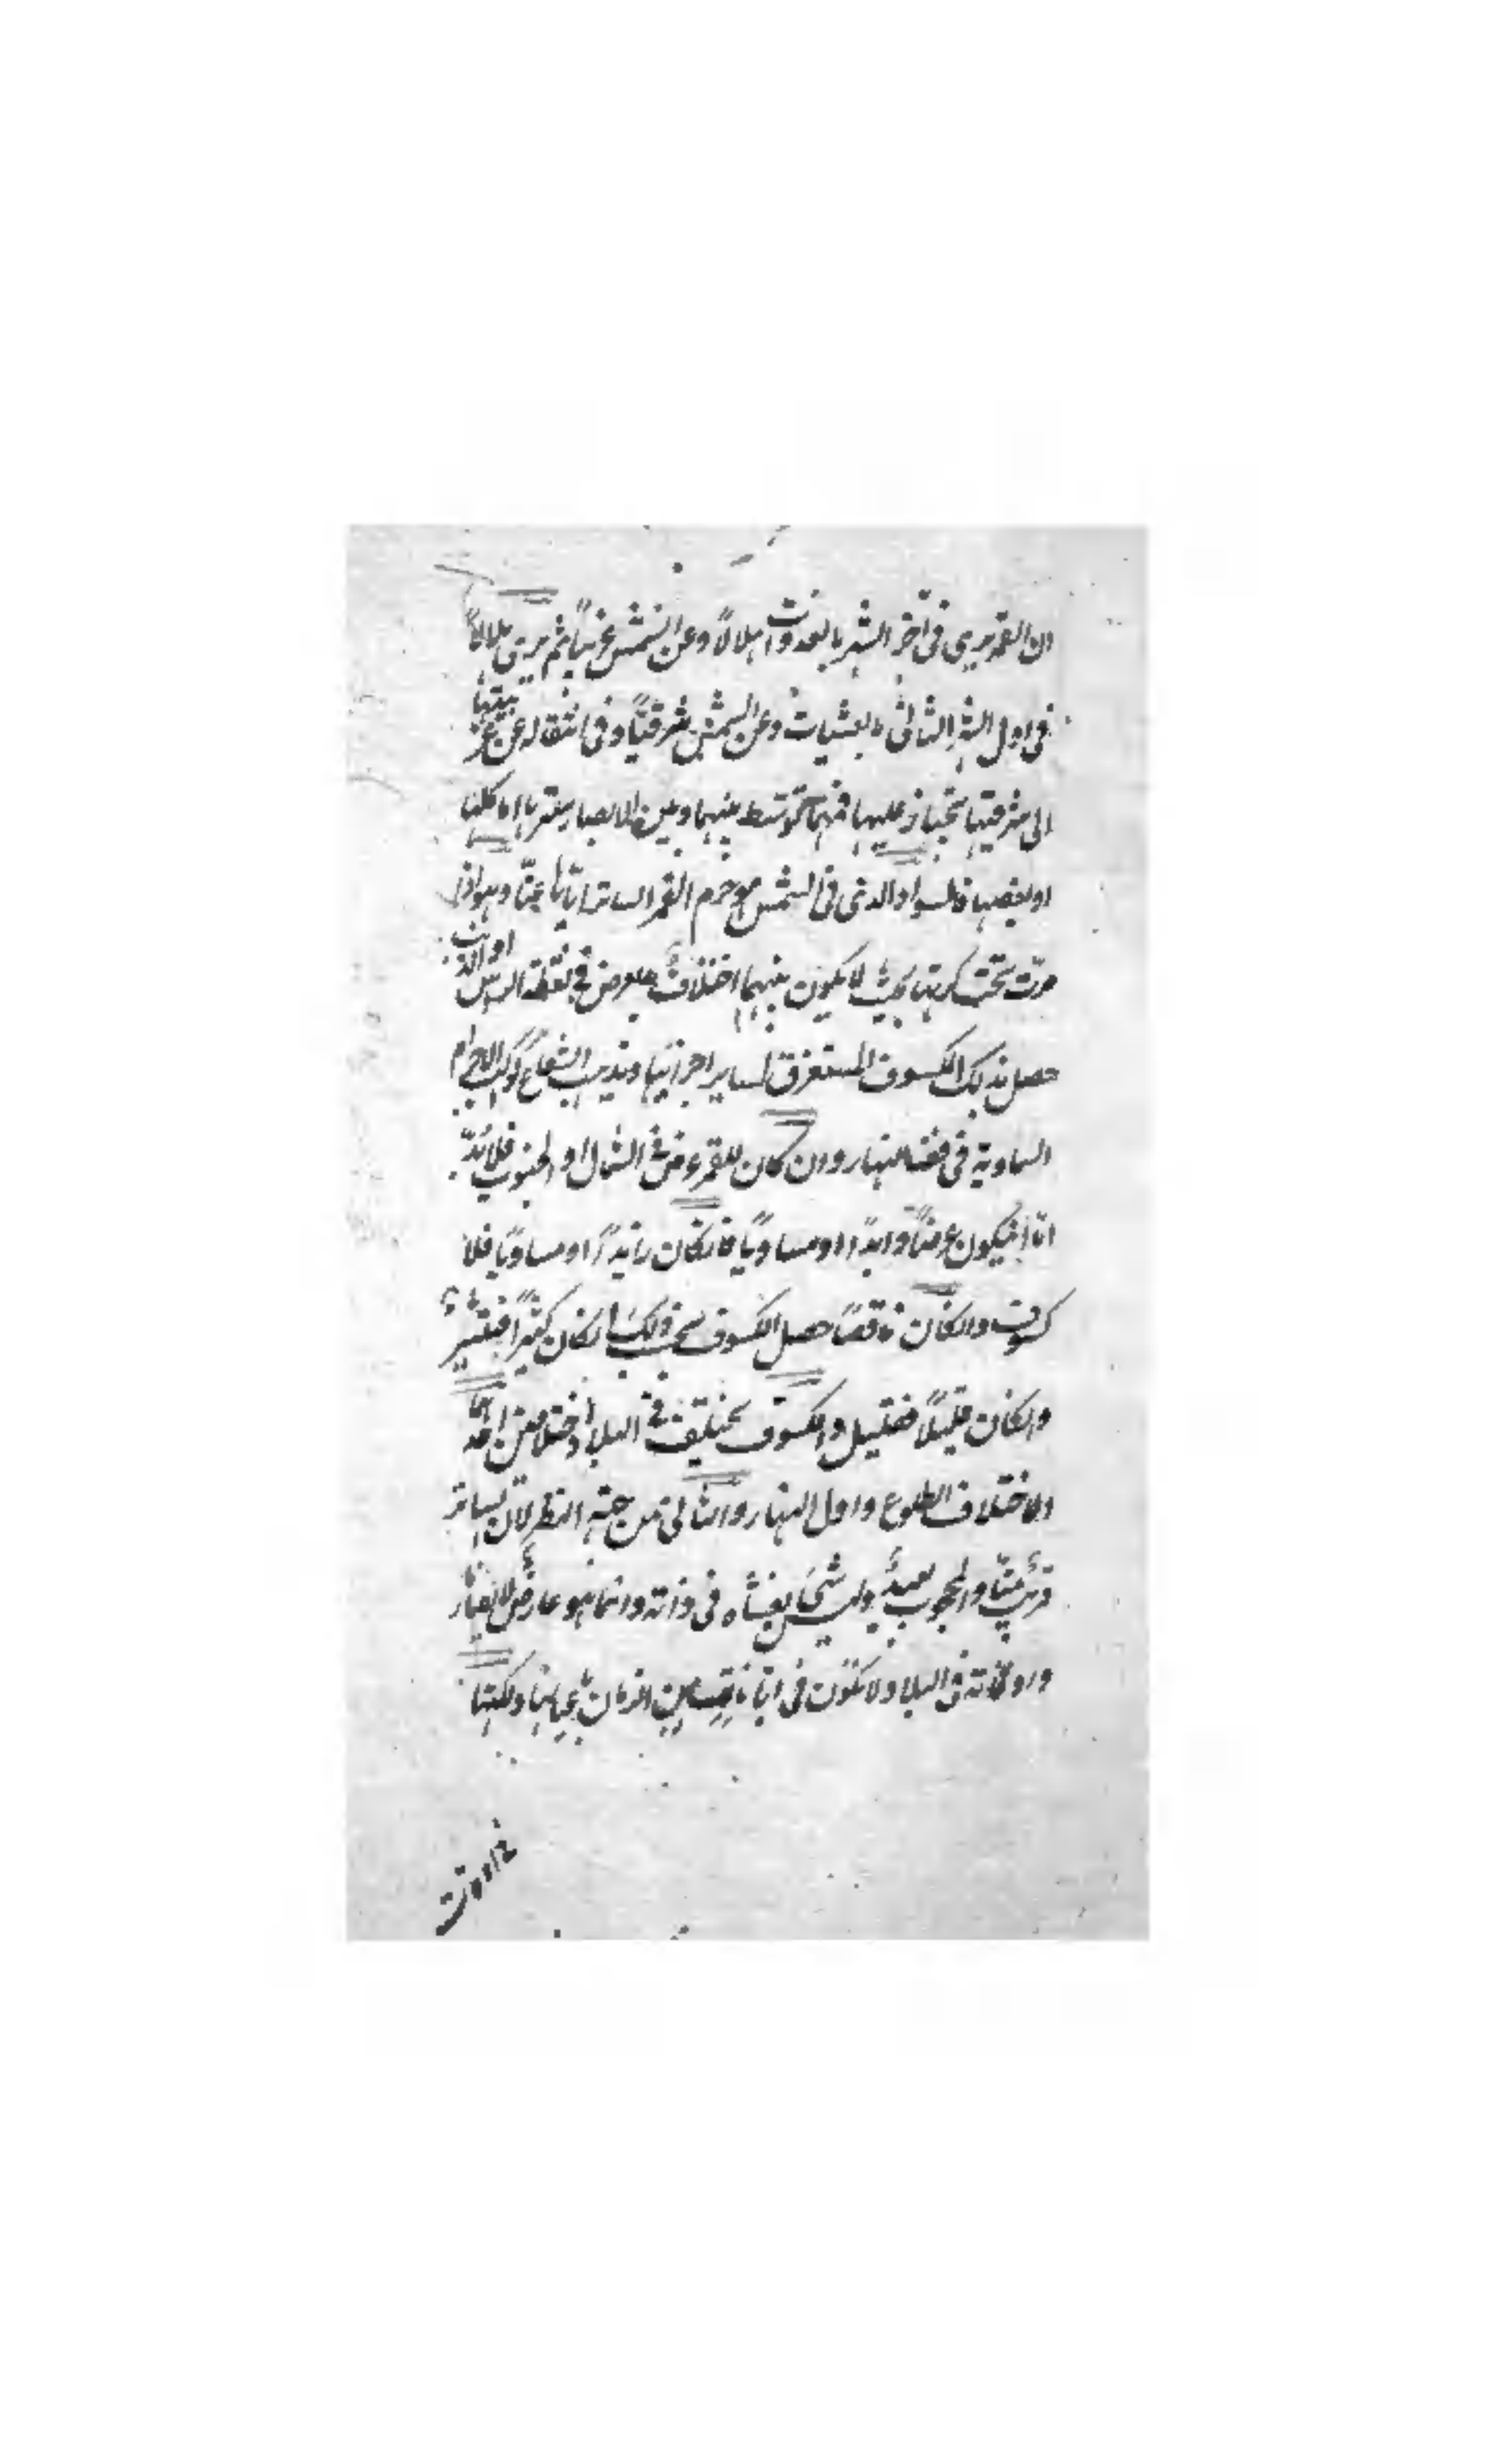 ان القمر يرى فى آخر الشهر بالغدوات هلالاً وعن الشمس غربياً ثم يرى هلالاً
فى اول الشهر الثانى بالعشيات وعن الشمس شرقيًّا وفى انتقاله عن غربيتها
الى شرقيتها يجتاز عليها فمهما توسط بينهما وبين الابصار سترها اما كلها
او بعضها فالسواد الذى فى الشمس هو جرم القمر الساتر ايّاها عنّا وهو اذا
مرّت تحت كرتها بحيث لا يكون بينهما اختلافٌ بعرض فى نقطة الراس او الذنب
حصل بذلك الكسوف المستغرق لساير اجزائها ويذهب الشعاع كوكب الاجرام
السماوية فى النهار وان كان للقمر عرض فى الشمال او الجنوب فلا بُدّ
امّا ان يكون عرضاً زايدًا او مساويًا فان كان زايدًا او مساويًا فلا
كسوف وان كان ناقصًا حصل الكسوف بحسب ذلك ان كان كثيرًا فكثير
وان كان قليلًا فقليل والكسوف يختلف فى البلاد اختلافين احدهما
الاختلاف الطلوع واول النهار والثانى من جهة النظر لان الساتر
قريبٌ منّا والمحجوب بعيدٌ وليس شىٌ يغشاه فى ذاته وانما هو عارضٌ للابصار
فى البلاد ولا تكون فى الزمان ولكنها